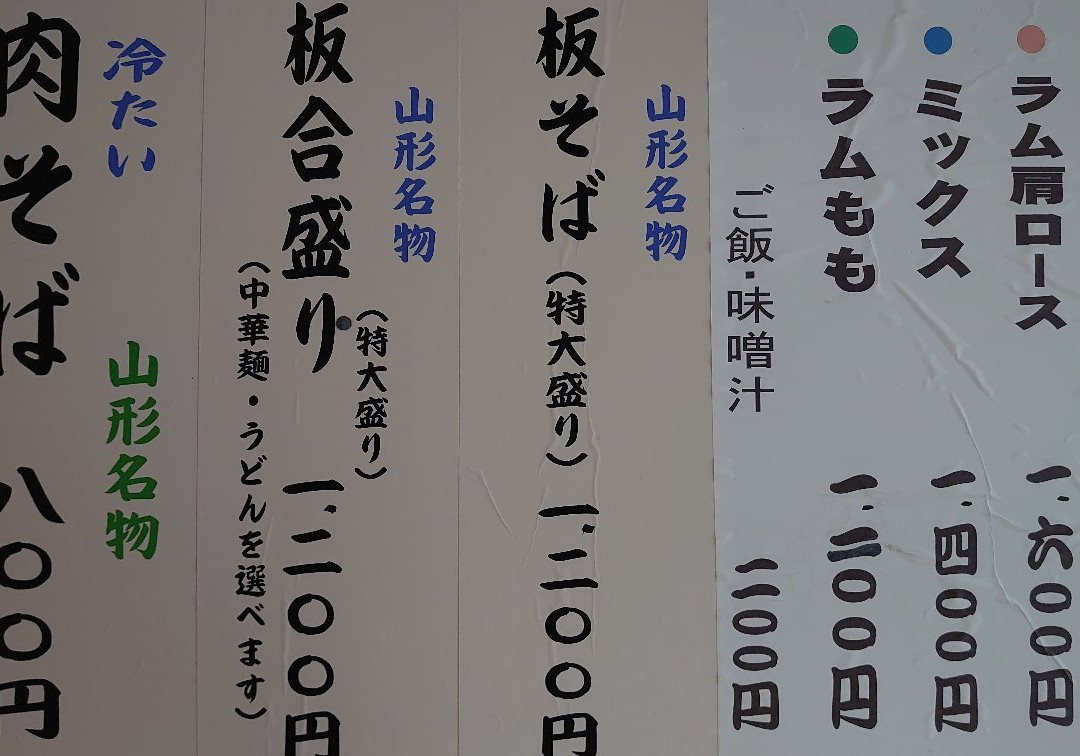 ラム肩ロース 一.六〇〇円
ミックス 一.四〇〇円
ラムもも 一.二〇〇円
ご飯・味噌汁 二〇〇円
山形名物
板そば(特大盛り)一.二〇〇円
山形名物
(特大盛り)
板合盛り 一.二〇〇円
(中華麺・うどんを選べます)
冷たい 山形名物
肉そば 八〇〇円